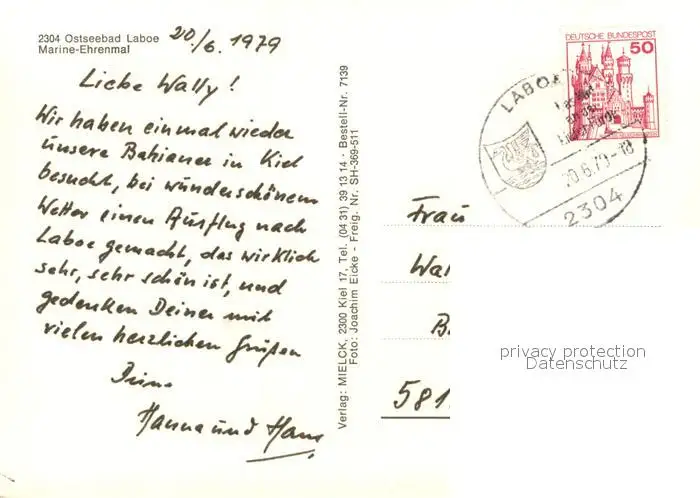 2304 Ostseebad Laboe
Marine-Ehrenmal
20./6. 1979
Liebe Wally!
Wir haben einmal wieder
unsere Bahianer in Kiel
besucht, bei wunderschönem
Wetter einen Ausflug nach
Laboe gemacht, das wirklich
sehr, sehr schön ist, und
gedenken Deiner mit
vielen herzlichen Grüßen
Deine
Hanna und Hans
Verlag: MIELCK, 2300 Kiel 17, Tel. (04 31) 39 13 14 · Bestell-Nr. 7139
Foto: Joachim Eicke - Freig. Nr. SH-369-511
DEUTSCHE BUNDESPOST
50
LABOE
20.6.79-18
2304
Frau
Wal
B
581
privacy protection
Datenschutz